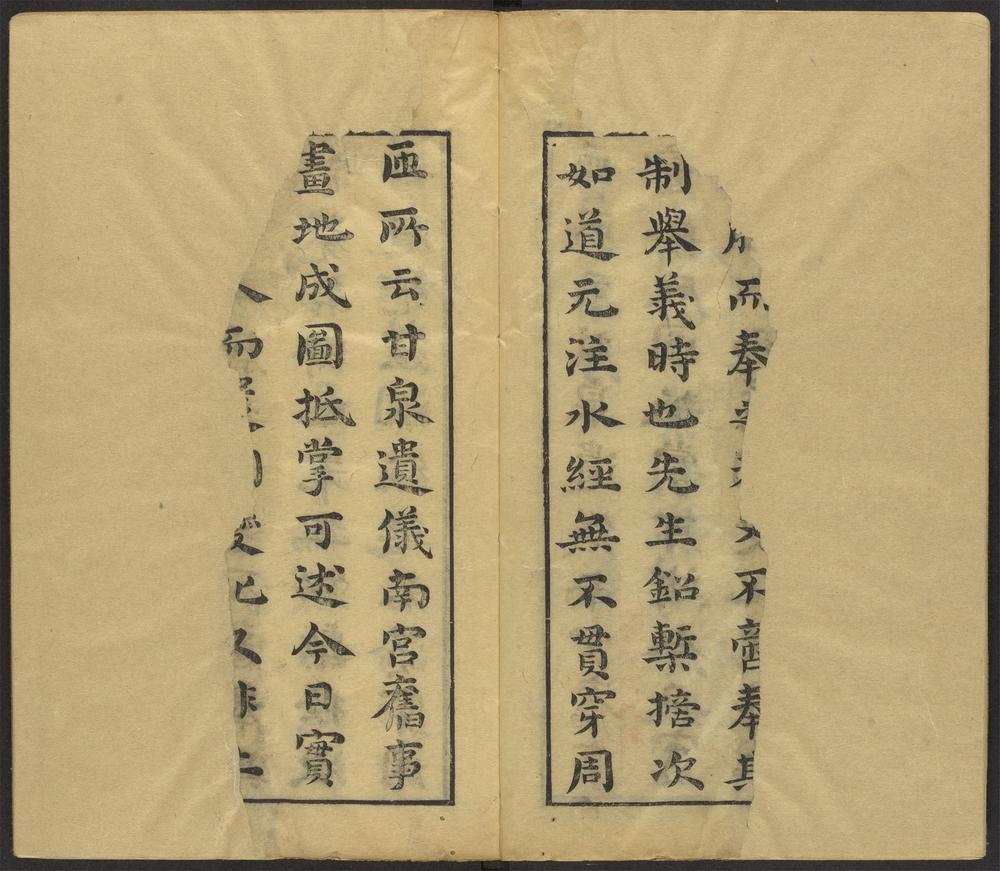 奉不啻奉其
制舉義時也先生鉛槧次
如道元注水經無不貫穿周
匝所云甘泉遺儀南宮舊事
畫地成圖抵掌可述今日實
而已又非